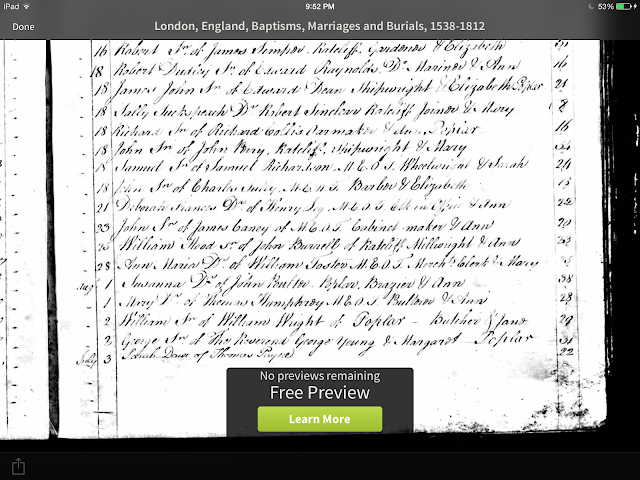 iPad 9:52 PM 53%
Done London, England, Baptisms, Marriages and Burials, 1538-1812
16 Robert Sr. of James Simpson Ratcliff, Gardener & Elizabeth 31
18 Robert Sr. of Edward Raynolds Do. Mariner & Ann 16
18 James John Sr. of Edward Dean Shipwright & Elizabeth Poplar 21
18 Sally Dr. Robert Sinclair Ratcliff Joiner & Mary 8
18 Richard Sr. of Richard & Ann, Poplar 16
18 John Sr. of John Ratcliff, Shipwright & Mary
18 Samuel Sr. of Samuel Richardson, M.E.O.T. Wheelwright & Sarah 24
18 John Sr. of Charles M.E.O.T. Barber & Elizabeth 15
21 Deborah Frances Dr. of Henry M.E.O.T. & Ann 22
23 John Sr. of James of M.E.O.T. Cabinet-maker & Ann 20
William Sr. of John of Ratcliff Millwright & Ann
28 Ann Maria Dr. of William Foster M.E.O.T. Merchts. Clerk & Mary
Augt 1 Susanna Dr. of John Brazier & Ann 38
1 Mary Dr. of Thomas Humphrey M.E.O.T. & Ann 28
2 William Sr. of William Wright of Poplar - Butcher & Jane 29
2 George Sr. of The Reverend George Young & Margaret - Poplar 31
July 3 Sarah Daur of Thomas 22
No previews remaining
Free Preview
Learn More